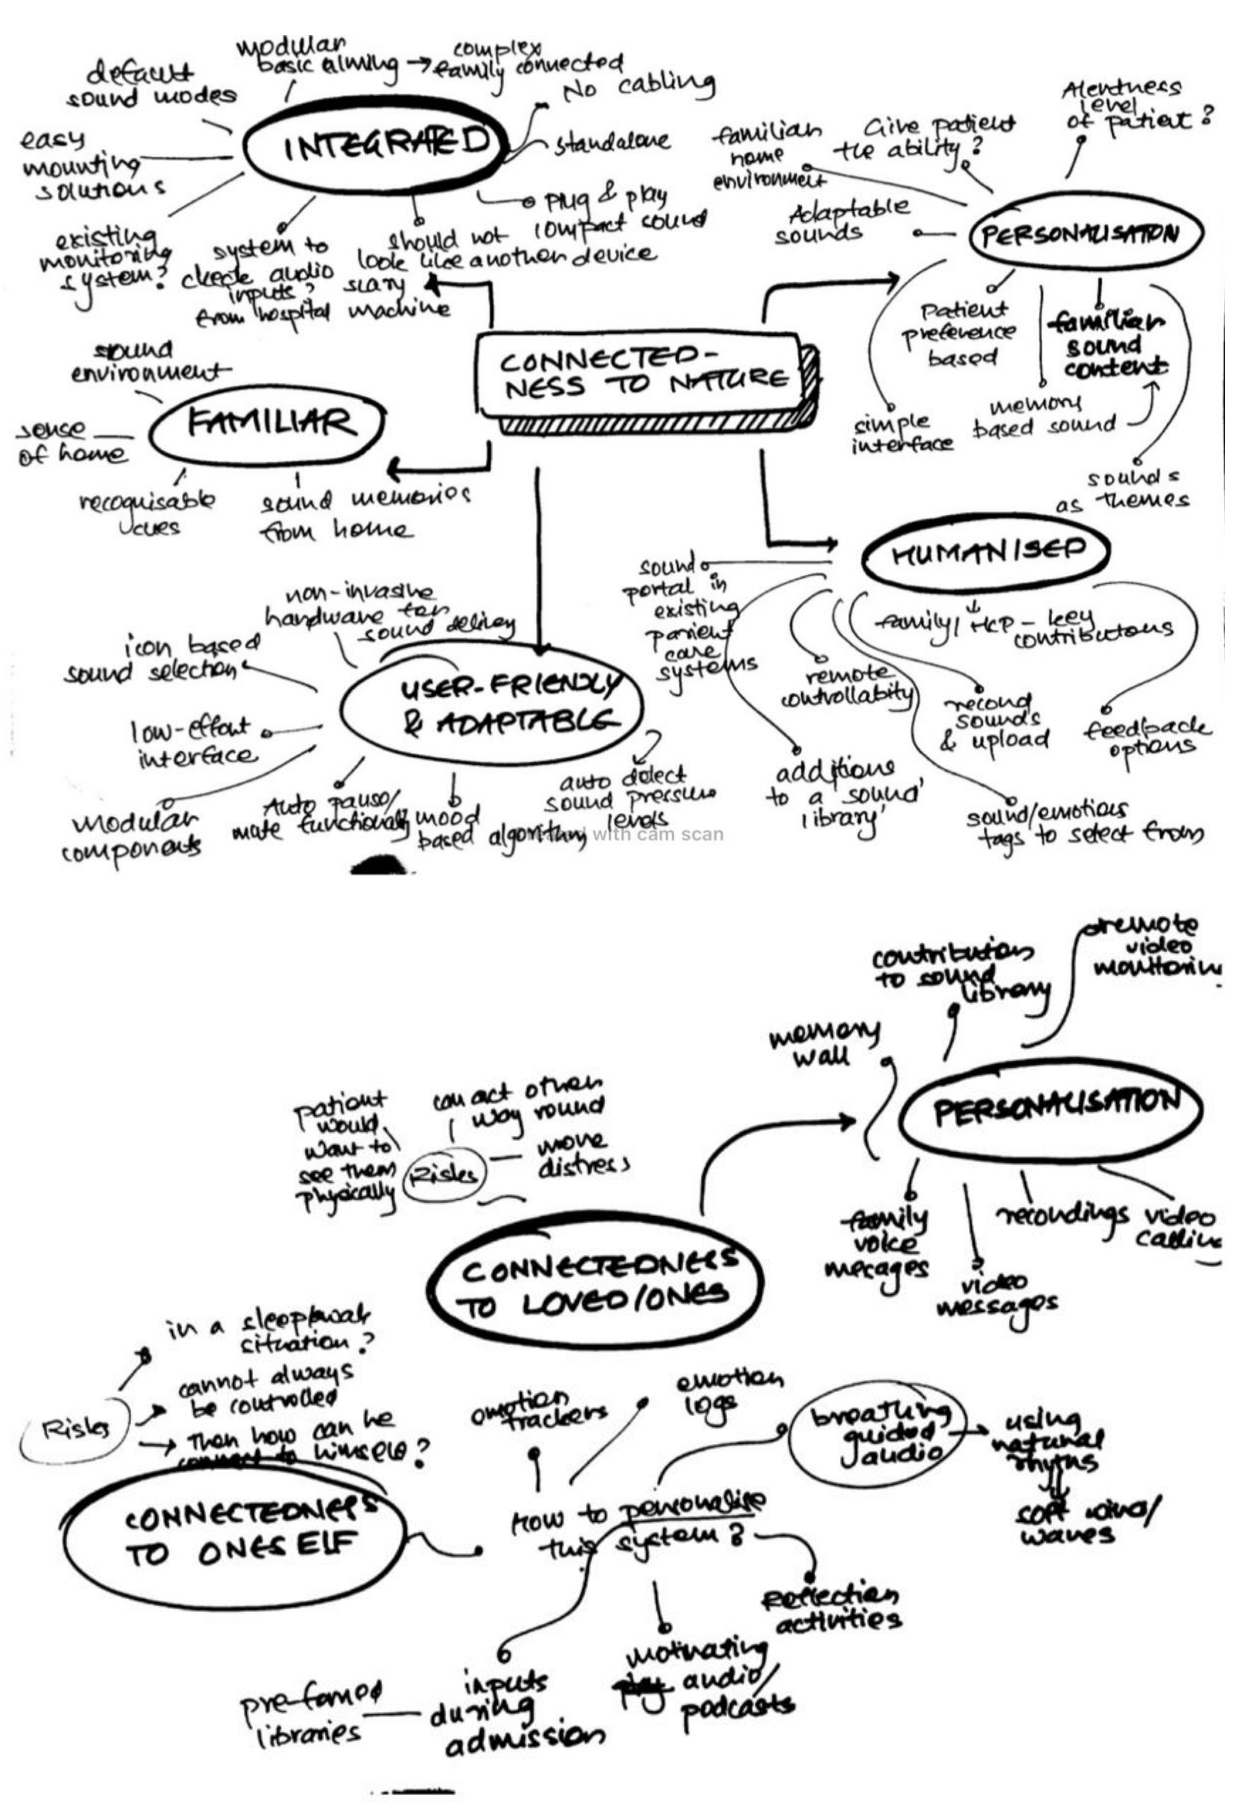 modular
basic aiming → complex
family connected
default
sound modes
No cabling
INTEGRATED
standalone
easy
mounting
solutions
plug & play
compact sound
existing
monitoring
system?
system to
create audio
inputs?
from hospital machine
should not
look like another device
scary
familiar
home
environment
Give patient
the ability?
Alertness
level
of patient?
Adaptable
sounds
PERSONALISATION
Patient
preference
based
familiar
sound
content
memory
based sound
simple
interface
sounds
as themes
CONNECTED-
NESS TO NATURE
sound
environment
FAMILIAR
sense
of home
recognisable
cues
sound memories
from home
HUMANISED
sound
portal in
existing
patient
care
systems
family/HCP - key
contributors
remote
controllabity
record
sounds
& upload
feedback
options
additions
to a 'sound
library'
sound/emotions
tags to select from
non-invasive
hardware for
sound delivery
icon based
sound selection
USER-FRIENDLY
& ADAPTABLE
low-effort
interface
modular
components
Auto pause/
mute functionality
mood
based algorithm
auto detect
sound pressure
levels
with cam scan
contribution
to sound
library
remote
video
monitoring
memory
wall
PERSONALISATION
family
voice
messages
video
messages
recordings
video
calling
patient
would
want to
see them
physically
can act other
way round
Risks
more
distress
CONNECTEDNESS
TO LOVED/ONES
in a
situation?
Risks
cannot always
be controlled
Then how can he
connect to himself?
CONNECTEDNESS
TO ONESELF
emotion
trackers
emotion
logs
breathing
guided
audio
using
natural
rhythms
soft wind/
waves
How to personalise
this system?
Reflection
activities
motivating
audio/
podcasts
inputs
during
admission
pre-famed
libraries